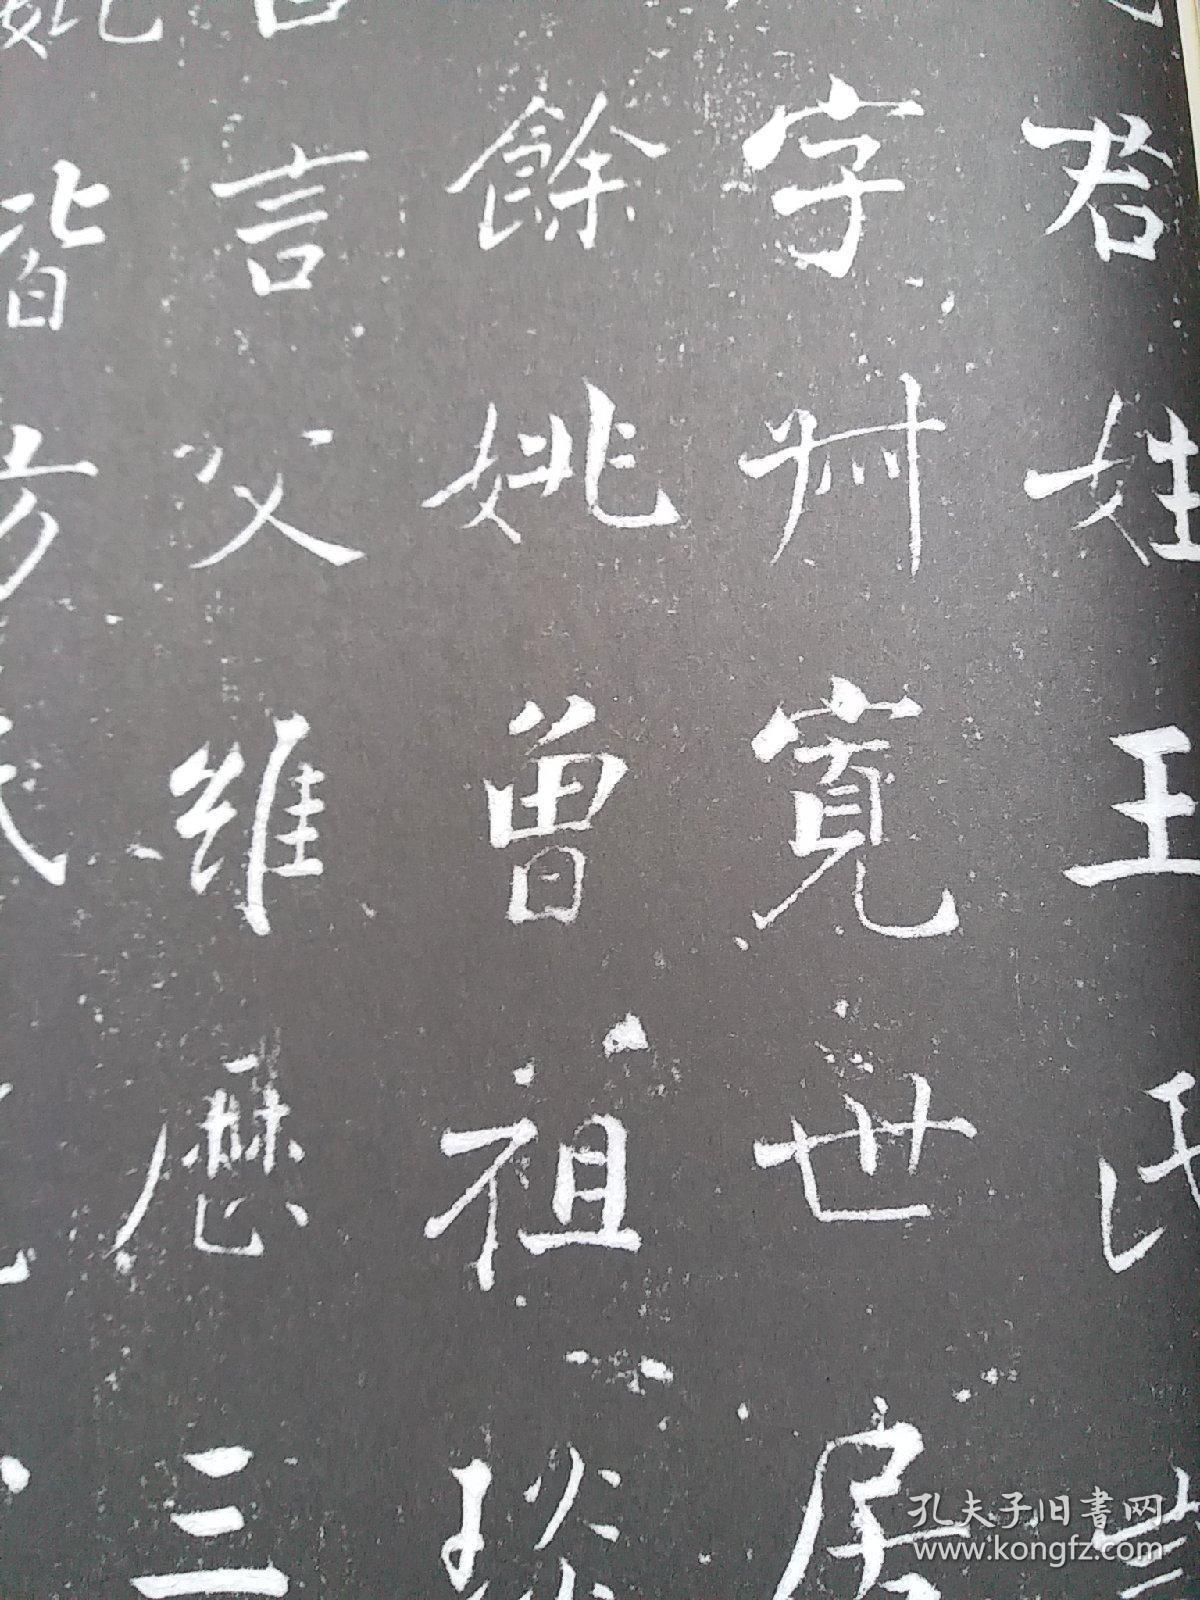 君姓王氏
字艸寬世居
餘姚曾祖琰
言父維歷三
皆
孔夫子旧書网
www.kongfz.com